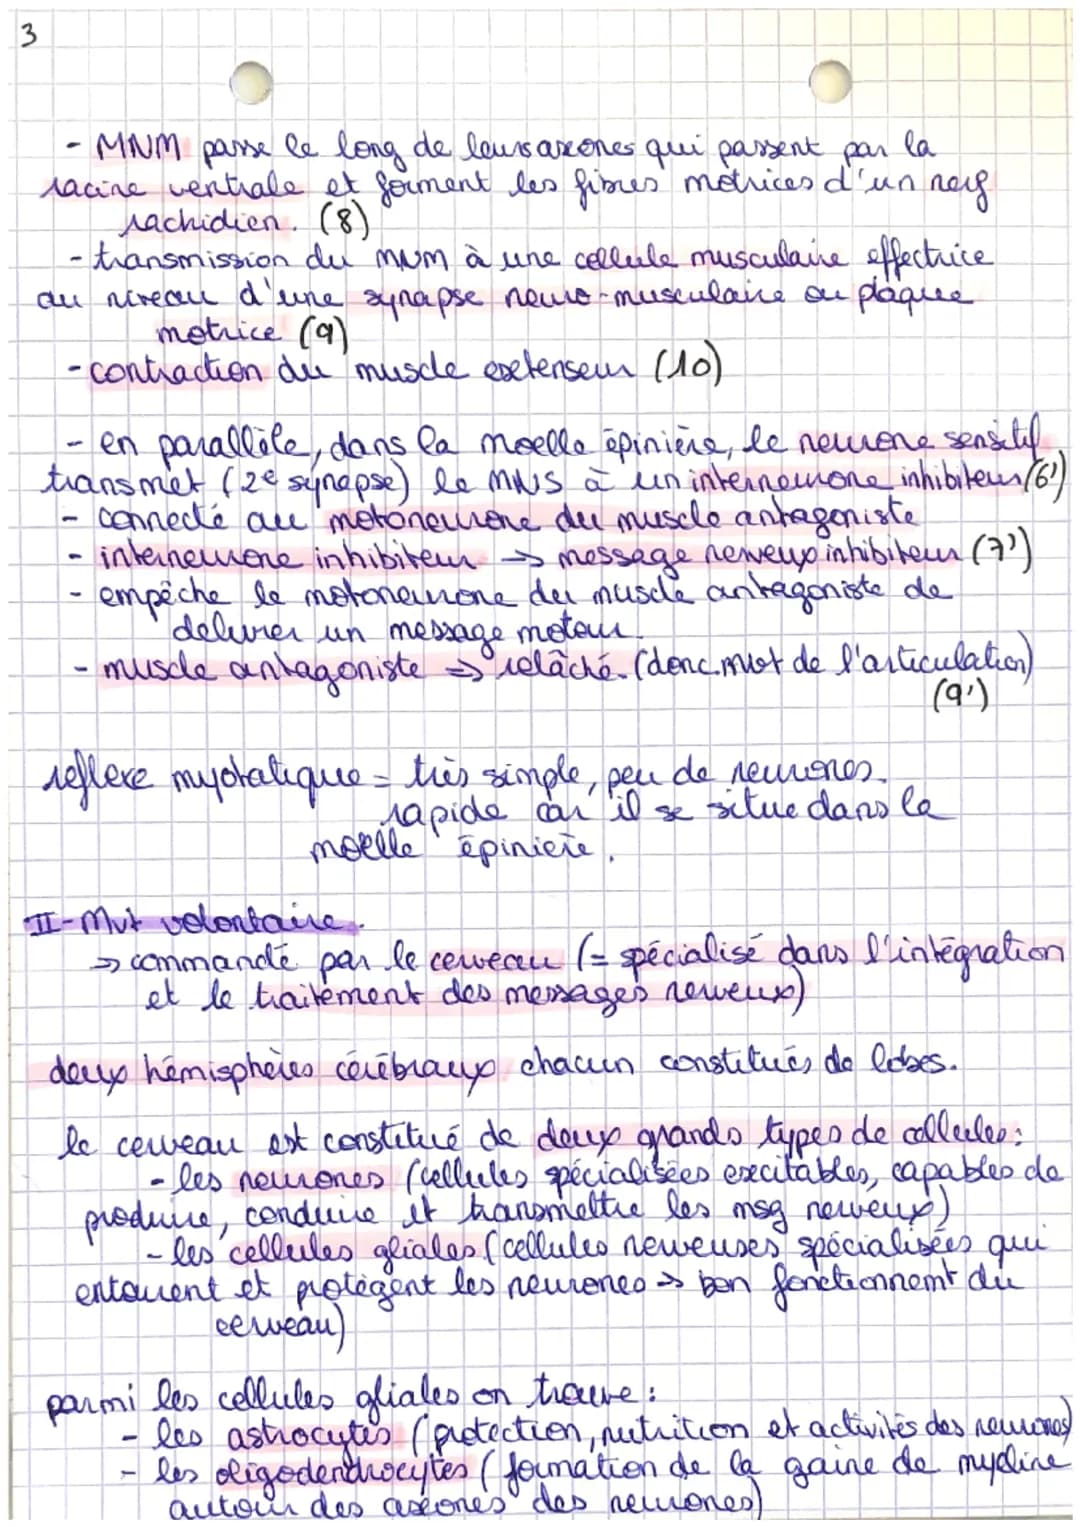 3
- MNM passe le long de leurs axones qui passent par la
racine ventrale et forment les fibres motrices d'un nerf
rachidien. (8)
- transmission du MNM à une cellule musculaire effectrice
au niveau d'une synapse neuro-musculaire ou plaque
motrice (9)
- contraction du muscle extenseur (10)
- en parallèle, dans la moelle épinière, le neurone sensitif
transmet (2e synapse) le MNS à un interneurone inhibiteur (6')
- connecté au motoneurone du muscle antagoniste
- interneurone inhibiteur → message nerveux inhibiteur (7')
- empêche le motoneurone du muscle antagoniste de
délivrer un message moteur.
- muscle antagoniste ⇒ relâché. (donc mvt de l'articulation)
(9')
reflexe myotatique = très simple, peu de neurones.
rapide car il se situe dans la
moelle épinière.
II - Mvt volontaire.
⇒ commandé par le cerveau (= spécialisé dans l'intégration
et le traitement des messages nerveux)
deux hémisphères cérébraux chacun constitués de lobes.
le cerveau est constitué de deux grands types de cellules :
- les neurones (cellules spécialisées excitables, capables de
produire, conduire et transmettre les msg nerveux)
- les cellules gliales (cellules nerveuses spécialisées qui
entourent et protègent les neurones → bon fonctionnemt du
cerveau)
parmi les cellules gliales on trouve :
- les astrocytes (protection, nutrition et activités des neurones)
- les oligodendrocytes (formation de la gaine de myéline
autour des axones des neurones)